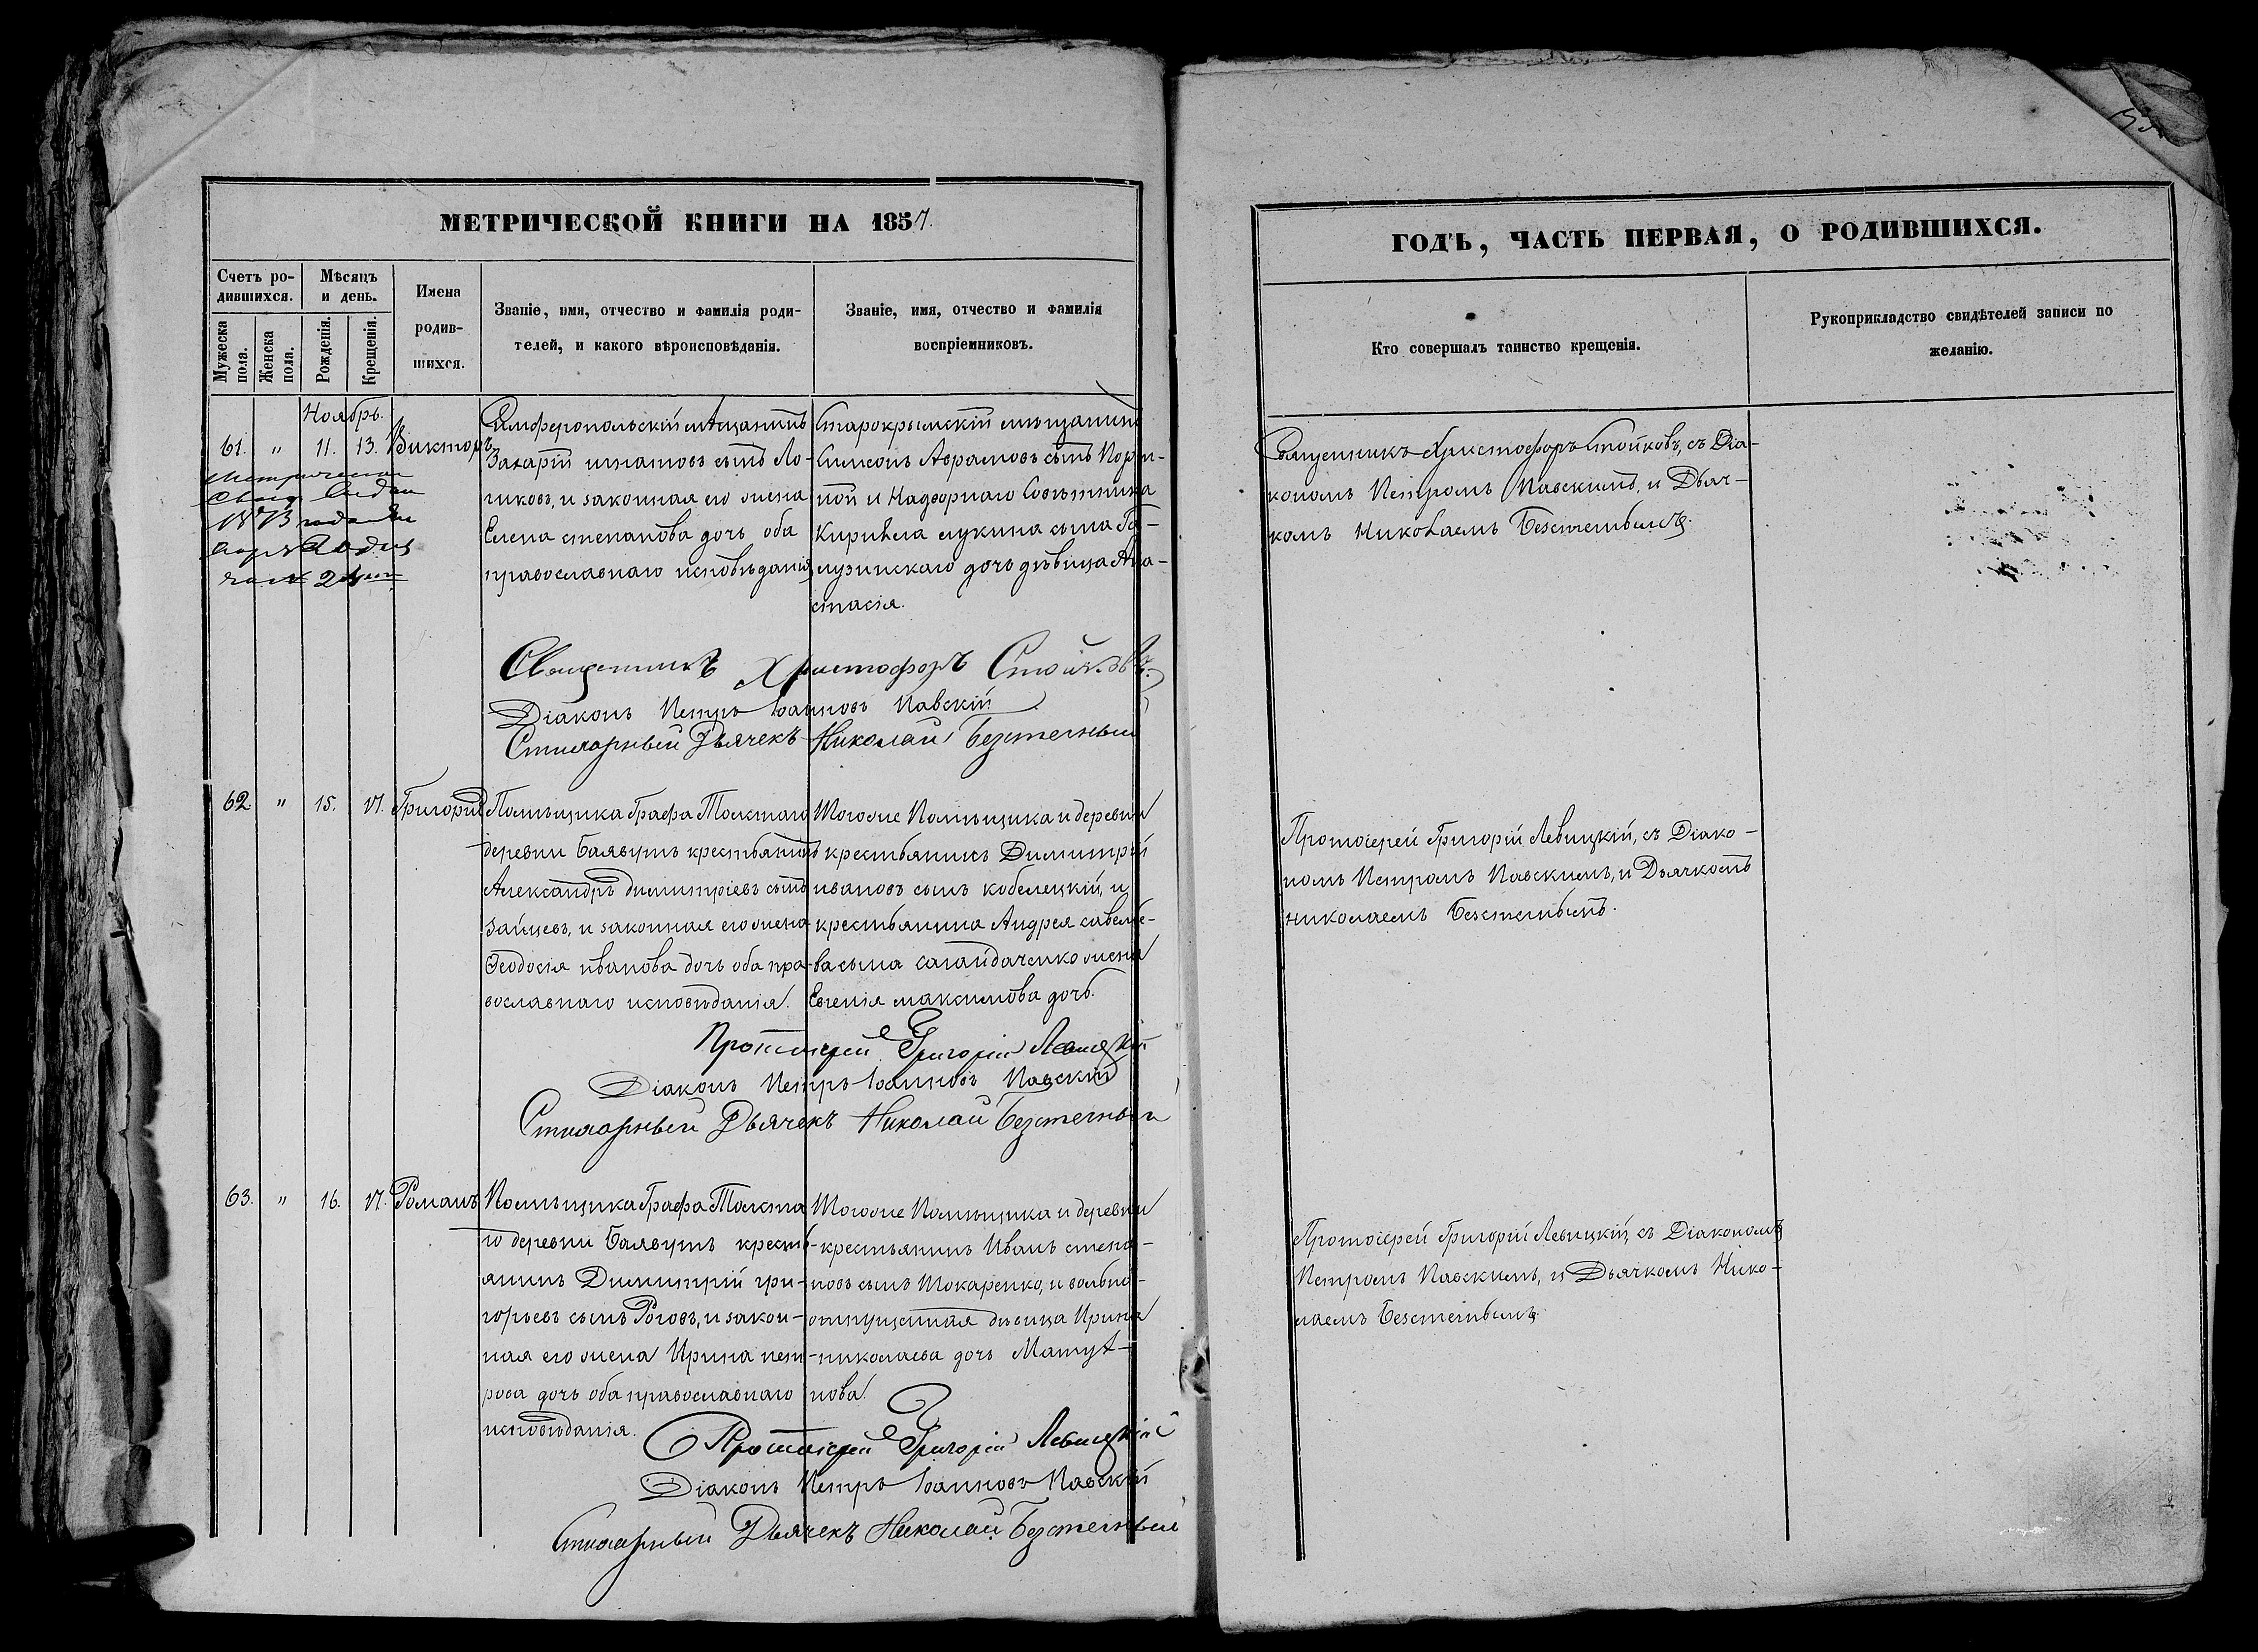 МЕТРИЧЕСКОЙ КНИГИ НА 1857.
Счетъ ро-
дившихся.
Мѣсяцъ
и день.
Мужеска
пола.
Женска
пола.
Рожденія.
Крещенія.
Имена
родив-
шихся.
Званіе, имя, отчество и фамилія роди-
телей, и какого вѣроисповѣданія.
Званіе, имя, отчество и фамилія
воспріемниковъ.
Ноябрь.
61. " 11. 13. Викторъ
1873 года
Симферопольскій мѣщанинъ
Захарій игнатовъ сынъ Ло-
гиковъ, и законная его жена
Елена степанова дочь оба
православнаго исповѣданія
Старокрымскій мѣщанинъ
Симеонъ Аврамовъ сынъ
и Надворнаго Совѣтника
Кирилла лукина сына Га-
лузинскаго дочь дѣвица Ана-
стасія.
Священникъ Христофоръ Стойковъ.
Діаконъ Петръ Іоанновъ Павскій
Стихарный Дьячекъ Николай
62. " 15. 17. Григорій
Помѣщика Графа Толстаго
деревни крестьянинъ
Александръ димитріевъ сынъ
зайцевъ, и законная его жена
Ѳеодосія иванова дочь оба пра-
вославнаго исповѣданія.
Тогоже Помѣщика и деревни
крестьянинъ Димитрій
ивановъ сынъ кобелецкій, и
крестьянина Андрея савелье-
ва сына сагайдаченко жена
Евгенія максимова дочь.
Протоіерей Григорій Левицкій
Діаконъ Петръ Іоанновъ Павскій
Стихарный Дьячекъ Николай
63. " 16. 17. Романъ
Помѣщика Графа Толста
го деревни кресть-
янинъ Димитрій гри-
горьевъ сынъ Роговъ, и закон-
ная его жена Ирина пет-
рова дочь оба православнаго
исповѣданія.
Тогоже Помѣщика и деревни
крестьянинъ Иванъ степа-
новъ сынъ Токаренко, и вольно-
отпущенная дѣвица Ирина
николаева дочь
нова.
Протоіерей Григорій Левицкій
Діаконъ Петръ Іоанновъ Павскій
Стихарный Дьячекъ Николай
ГОДЪ, ЧАСТЬ ПЕРВАЯ, О РОДИВШИХСЯ.
Кто совершалъ таинство крещенія.
Рукоприкладство свидѣтелей записи по
желанію.
Священникъ Христофоръ Стойковъ, съ Діа-
кономъ Петромъ Павскимъ, и Дьяч-
комъ Николаемъ
Протоіерей Григорій Левицкій, съ Діако-
номъ Петромъ Павскимъ, и Дьячкомъ
николаемъ
Протоіерей Григорій Левицкій, съ Діакономъ
Петромъ Павскимъ, и Дьячкомъ Нико-
лаемъ